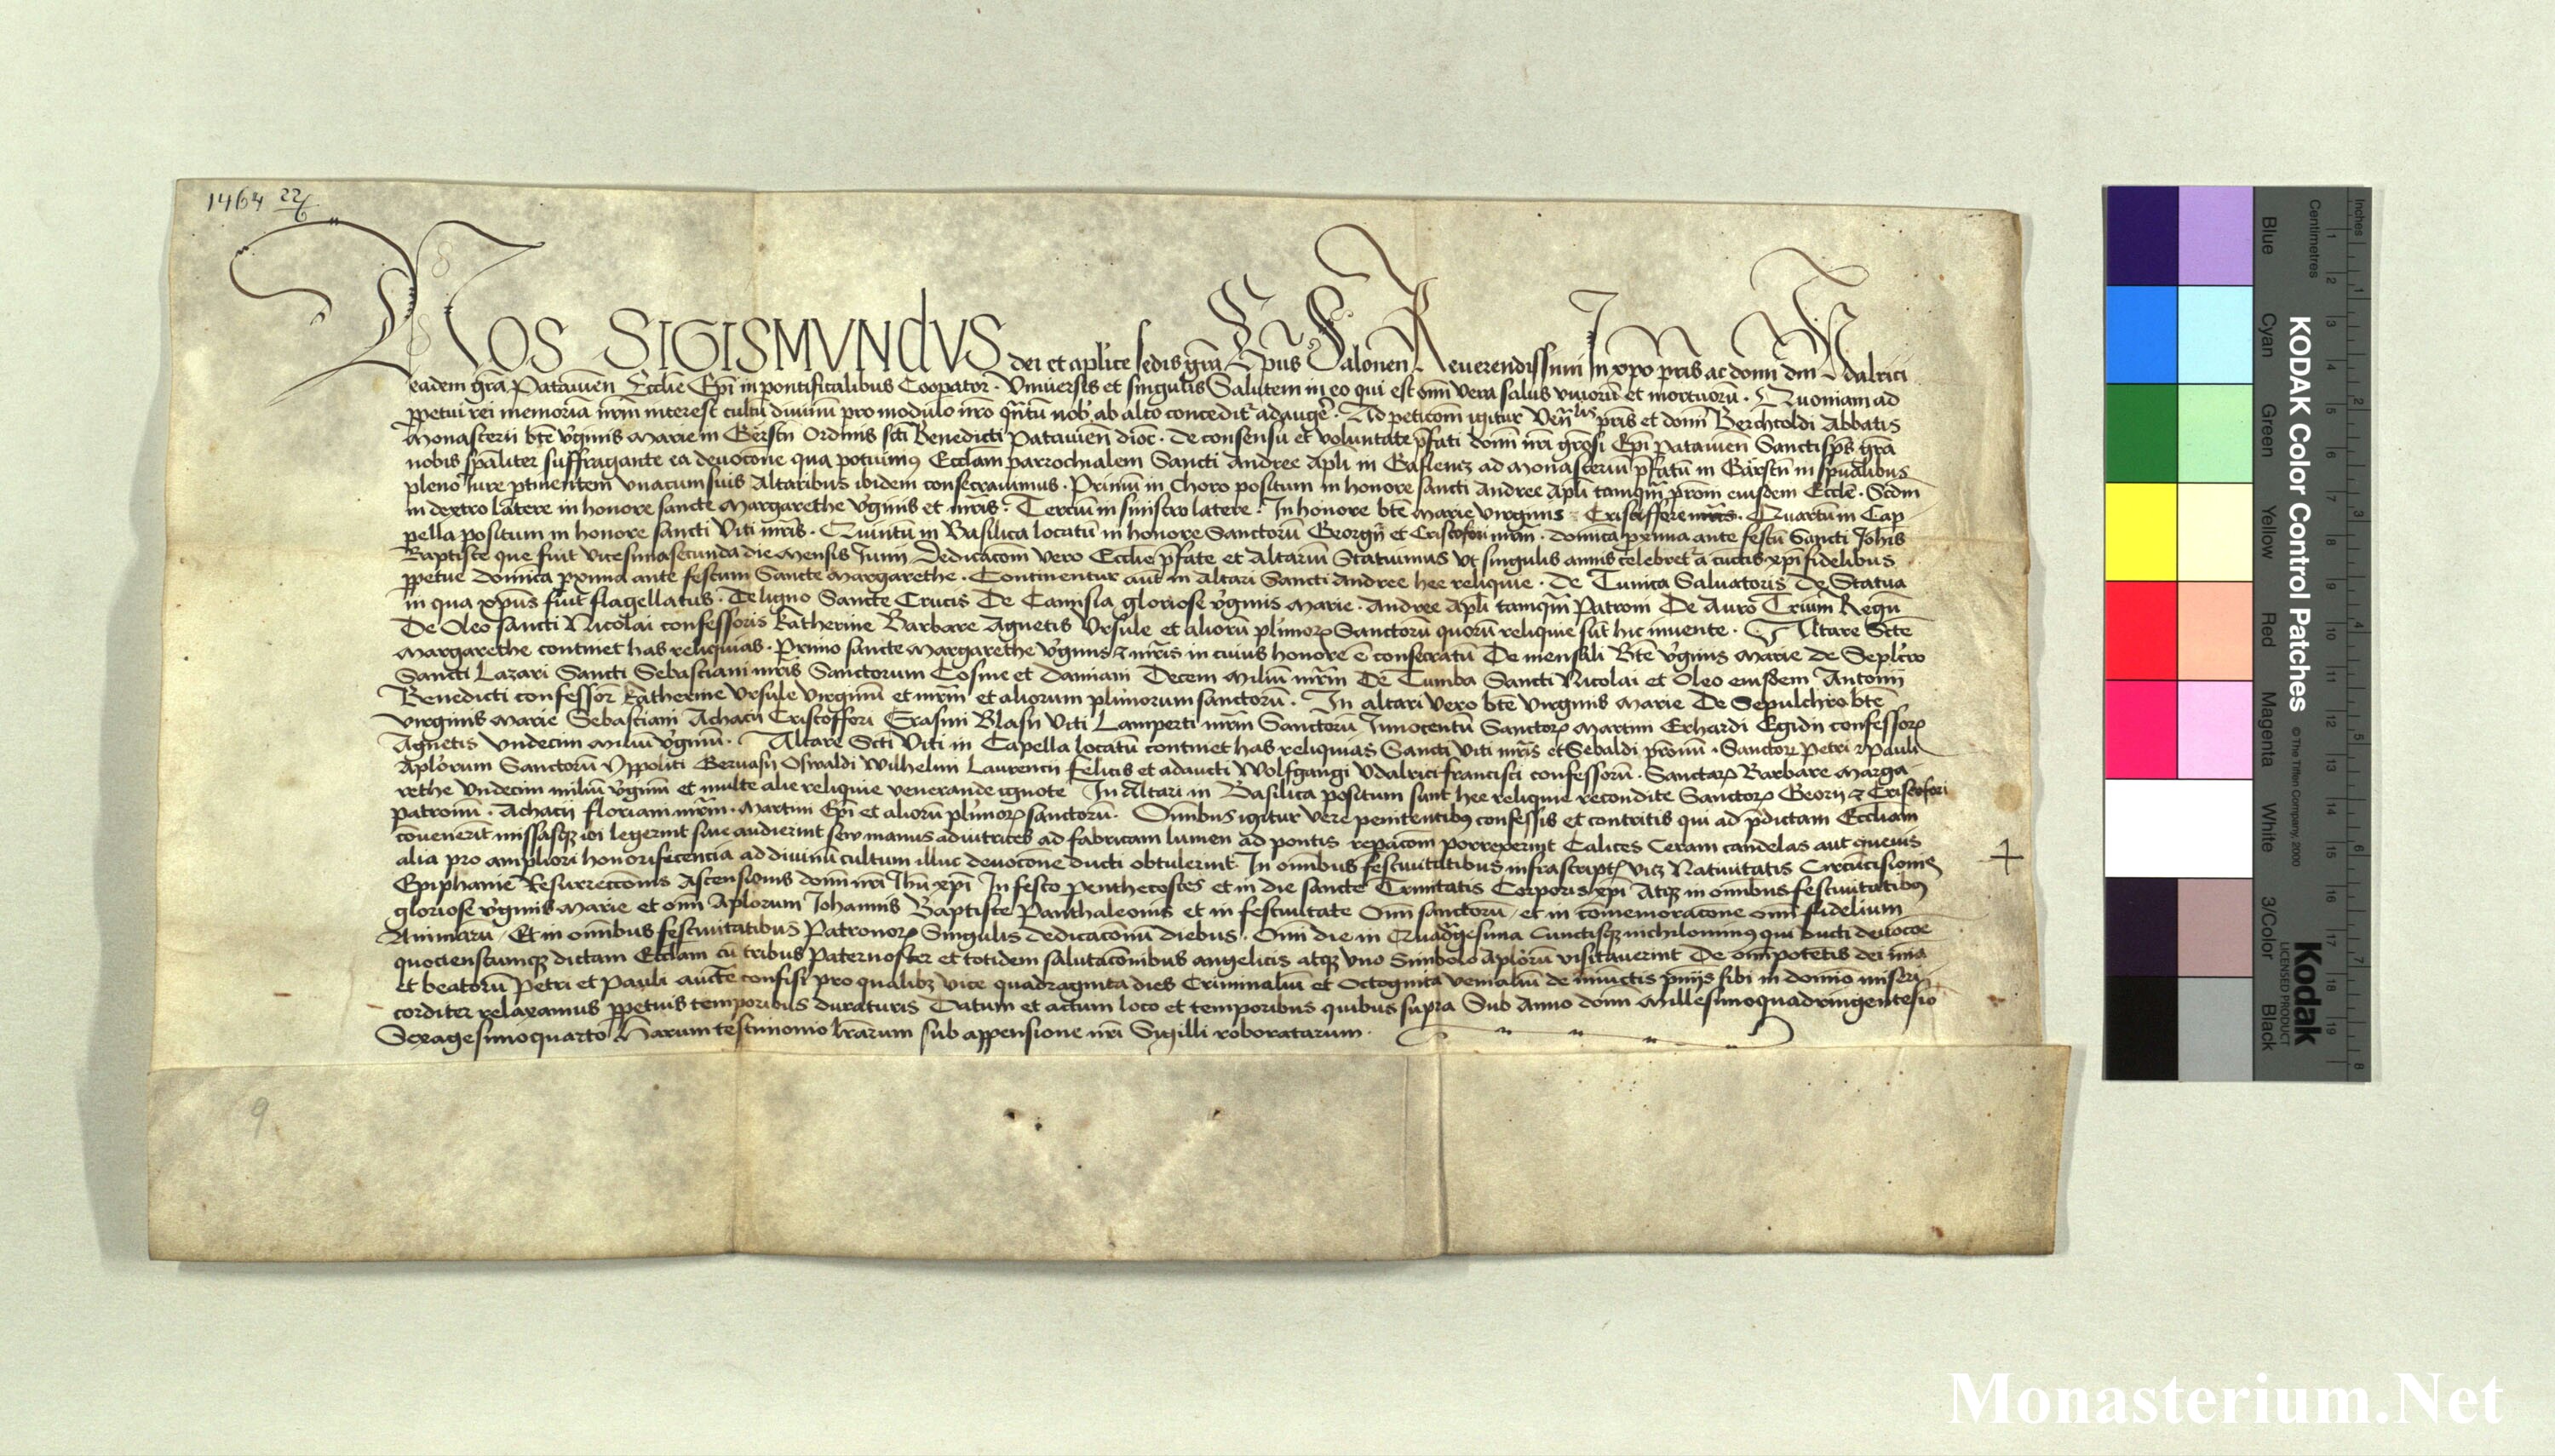 1464 22/6
NOS SIGISMVNdVS dei et aplice sedis gra Epus Salonen Reuerendissimi In xpo pris ac domi dni Vdalrici
eadem gra Patauien Ecclie Epi in pontificalibus Coopator · Vniuersis et singulis Salutem in eo qui est omi vera salus viuorū et mortuorū · Quoniam ad
ppetui rei memoriā nrm interest cultū diuinū pro modulo nro qntū nob ab alto concedit adauge · Ad peticom igitur Ven lis pris et domi Berchtoldi Abbatis
Monasterii bte vginis Marie in Gerstn Ordinis scti Benedicti Patauien dioc · de consensu et voluntate pfati domi nri grosi Epi patauien Sancti sps gra
nobis spaliter suffragante ea deuocone qua potuimus Ecclam parrochialem Sancti Andree Apli in Gaflencz ad Monasteriū pfatū in Gärstn in spualibus
pleno iure ptinentem vnacum suis Altaribus ibidem consecrauimus · Primū in Choro positum in honore sancti Andree Apli tamqm prom eiusdem Eccle · Scdm
in dextro latere in honore sancte Margarethe vginis et mris · Terciū in sinistro latere · In honore bte Marie virginis Cristifferi mris · Quartū in Cap
pella positum in honore sancti Viti mris · Quintū in Basilica locatū in honore Sanctorū Georgii et Cristofori mrm · domica pxima ante festū Sancti Johis
Baptiste que fuit vicesimasecunda die Mensis Junii Dedicacom vero Ecclie pfate et Altariū Statuimus vt singulis annis celebret a cuctis xpi fidelibus
ppetue domica pxima ante festum Sancte Margarethe · Continentur aut in Altari Sancti Andree hee reliquie · de Tunica Saluatoris De Statua
in qua xpus fuit flagellatus · De ligno Sancte Crucis De Camisia gloriose vginis Marie · Andree Apli tamqm Patroni De Auro Trium Regū
De Oleo sancti Nicolai confessoris katherine Barbare Agnetis Vrsule et aliorū plimorꝝ Sanctorū quorū reliquie sūt hic inuente · Altare Scte
Margarethe continet has reliquias · Primo sancte Margarethe vginis et mris in cuius honore ē consecratū De mensali Bte vginis Marie de Seplcro
Sancti Lazari Sancti Sebastiani mris Sanctorum Cosme et Damiani Decem miliū mrm De Tumba Sancti Nicolai et Oleo eiusdem Antonii
Benedicti confessor katherine Vrsule virginū et mrm et aliorum plimorum sanctorū · In altari vero bte virginis Marie De Sepulchro bte
virginis Marie Sebastiani Achacii Cristoffori Erasmi Blasii Viti Lamperti mrm Sanctorū Innocentū Sanctorꝝ Martini Erhardi Egidii confessorꝝ
Agnetis vndecim miliū vginū · Altare Scti Viti in Capella locatū continet has reliquias Sancti Viti mris et Sebaldi pronū · Sanctorꝝ Petri et Pauli
Aplorum Sanctorū Yppoliti Geruasii Oswaldi Wilhelmi Laurencii felicis et adaucti Wolfgangi Vdalrici francisci confessorū · Sanctarꝝ Barbare Marga
rethe Vndecim miliū vginū et multe alie reliquie venerande ignote In Altari in Basilica positum sunt hee reliquie recondite Sanctorꝝ Georii et Cristofori
patronū · Achacii floriani mrm · Martini Epi et aliorū plimorꝝ sanctorū · Omnibus igitur vere penitentibus confessis et contritis qui ad pdictam Eccliam
cōuenerīt missasqꝫ ibi legerint siue audierint seu manus adiutrices ad fabricam lumen ad pontis repacom porrexerint Calices Ceram candelas aut queuis
alia pro ampliori honorificencia ad diuinū cultum illuc deuocone ducti obtulerint · In omibus festiuitatibus infrascript vicꝫ Natiuitatis Circūcisionis
Epiphanie Resurreccōnis Ascensionis domi nri Jhu xpi In festo penthecostes et in die sancte Trinitatis Corporis xpi Atqꝫ in omibus festiuitatibus
gloriose vginis Marie et omi Aplorum Johannis Baptiste Panthaleonis et in festiuitate Omi sanctorū et in cōmemoracone omi fidelium
Animarū · Et in omibus festiuitatibus Patronorꝝ Singulis dedicaconū diebus · Omi die in Quadgesima Cunctisqꝫ nichilominus qui ducti deuocoe
quociescumqꝫ dictam Ecclam cū tribus Paternoster et totidem salutaconibus angelicis atqꝫ vno Simbolo Aplorū visitauerint De omipotetis dei mia
et beatorū Petri et Pauli aucte confisi pro qualibꝫ vice quadraginta dies Criminaliū et Octoginta venialiū de iniūctis pniis sibi in domio miseri
corditer relaxamus ppetuis temporibus duraturis Datum et actum loco et temporibus quibus supra Sub Anno domi Millesimoquadringentesio
Sexagesimoquarto Harum testimonio lrarum sub appensione nri Sigilli roboratarum ·
9
KODAK Color Control Patches © The Tiffen Company, 2000
Kodak
LICENSED PRODUCT
Inches
Centimetres
Blue Cyan Green Yellow Red Magenta White 3/Color Black
1 2 3 4 5 6 7 8 9 10 11 12 13 14 15 16 17 18 19
1 2 3 4 5 6 7 8
Monasterium.Net